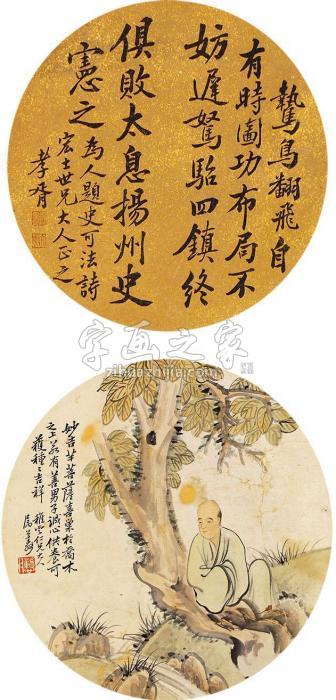 鷙鳥翻飛自
有時圖功布局不
妨遲駑駘四鎮終
俱敗太息揚州史
憲之
為人題史可法詩
宏士世兄大人正之
孝胥
字画之家
zihuazhijia.com
妙吉羊菩薩喜巢於喬木
之上若有善男子誠心供養可
獲種種吉祥